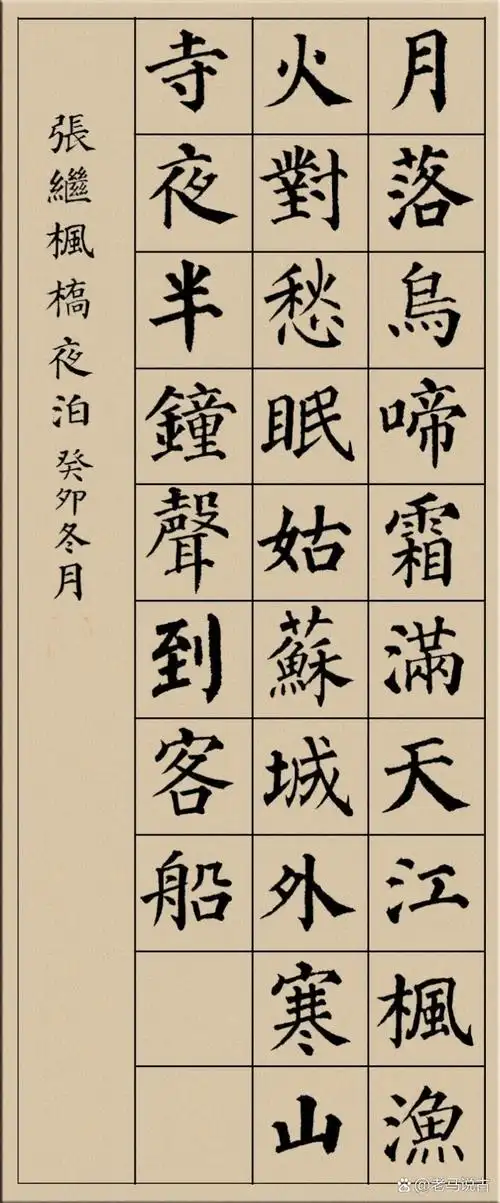 月落烏啼霜滿天江楓漁
火對愁眠姑蘇城外寒山
寺夜半鐘聲到客船
張繼楓橋夜泊 癸卯冬月
@老马说古